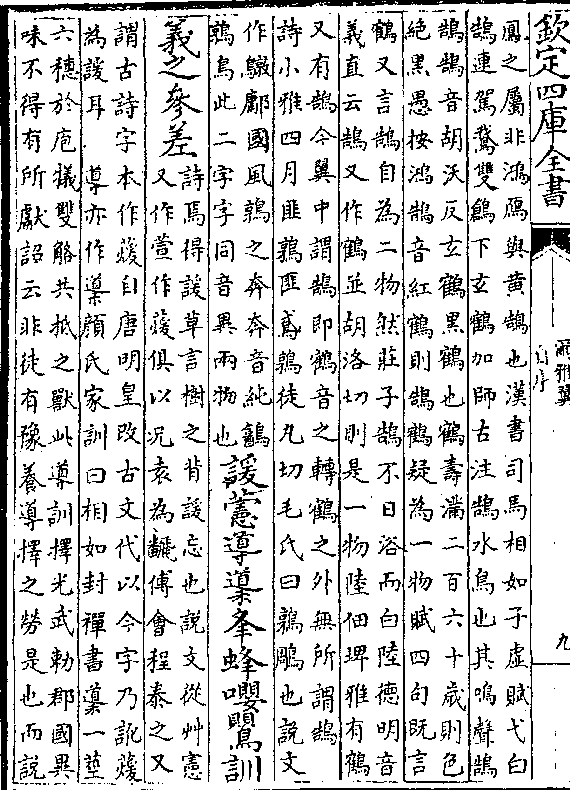 欽定四庫全書
爾雅翼
自序
九
鳳之屬非鴻鴈與黄鵠也漢書司馬相如子虚賦弋白
鵠連駕鵞雙鶬下玄鶴加師古注鵠水鳥也其鳴聲鵠
鵠鵠音胡沃反玄鶴黒鶴也鶴壽滿二百六十歲則色
絶黒愚按鴻鵠音紅鶴則鵠鶴疑為一物賦四句既言
鶴又言鵠自為二物然莊子鵠不日浴而白陸德明音
義直云鵠又作鶴並胡洛切則是一物陸佃埤雅有鶴
又有鵠今翼中謂鵠即鶴音之轉鶴之外無所謂鵠
詩小雅四月匪鶉匪鳶鶉徒丸切毛氏曰鶉鵰也説文
作鷻鄘國風鶉之奔奔音純鷂
鶉鳥此二字字同音異兩物也
諼藼導䆃夆蜂嚶鸎訓
義之參差
詩焉得諼草言樹之背諼忘也説文從艸憲
又作萱作蕿俱以况袁為翻傅會程泰之又
謂古詩字本作蕿自唐明皇改古文代以今字乃訛蕿
為諼耳 導亦作䆃顔氏家訓曰相如封禪書䆃一莖
六穗於庖犧雙觡共抵之獸此導訓擇光武勅郡國異
味不得有所獻詔云非徒有豫養導擇之勞是也而説